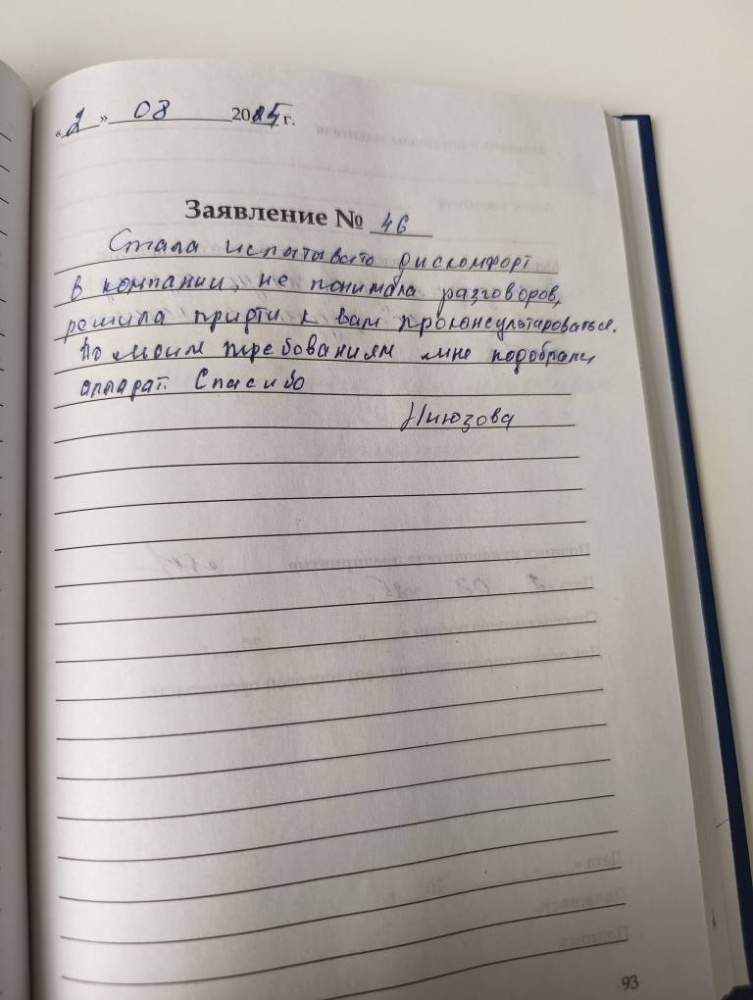 «2» 08 2025 г.
Заявление № 46
Стала испытывать дискомфорт
в компании, не понимала разговоров,
решила придти к вам проконсультароваться.
По моим требованиям мне подобрали
аппарат. Спасибо
Ниюзова
93